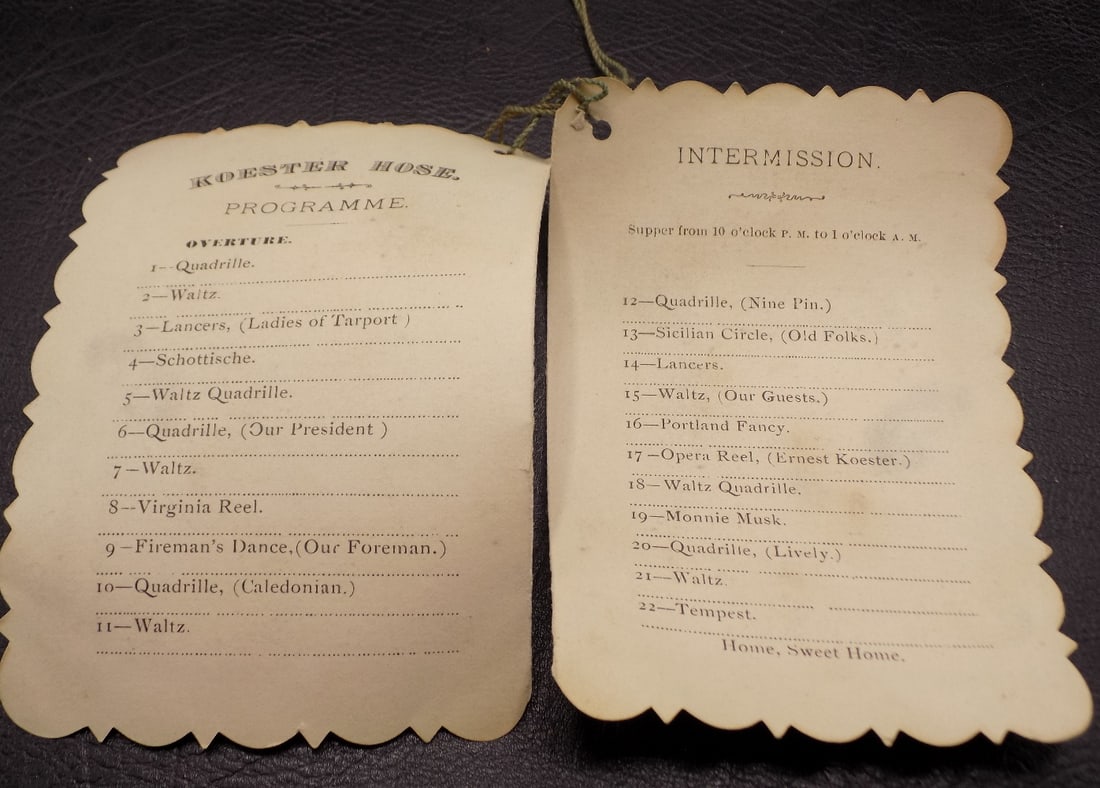 KOESTER HOSE.
PROGRAMME.
OVERTURE.
1--Quadrille.
2—Waltz.
3—Lancers, (Ladies of Tarport )
4—Schottische.
5—Waltz Quadrille.
6—Quadrille, (Our President )
7—Waltz.
8--Virginia Reel.
9—Fireman's Dance,(Our Foreman.)
10—Quadrille, (Caledonian.)
11—Waltz.
INTERMISSION.
Supper from 10 o'clock P. M. to 1 o'clock A. M.
12—Quadrille, (Nine Pin.)
13—Sicilian Circle, (Old Folks.)
14—Lancers.
15—Waltz, (Our Guests.)
16—Portland Fancy.
17—Opera Reel, (Ernest Koester.)
18—Waltz Quadrille.
19—Monnie Musk.
20—Quadrille, (Lively.)
21—Waltz.
22—Tempest.
Home, Sweet Home.